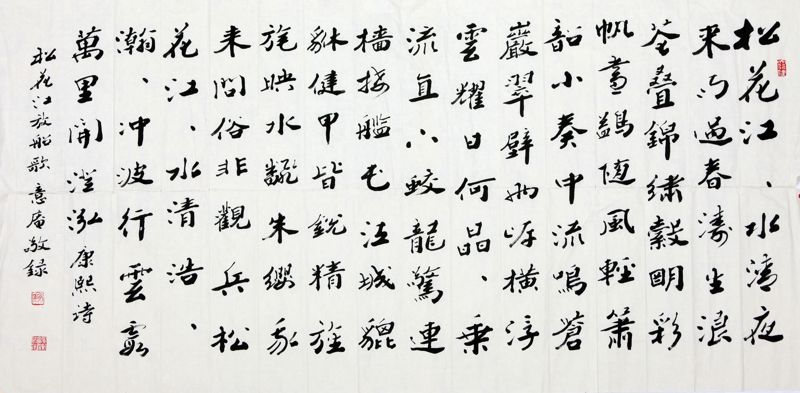 松花江、水清夜
来雨過春濤生浪
花疊錦繡縠明彩
帆畫鷁随風輕簫
韶小奏中流鳴蒼
巖翠壁兩岸橫浮
雲耀日何晶、乗
流直下蛟龍驚連
檣接艦屯江城貔
貅健甲皆銳精旌
旄映水翻朱纓我
来問俗非觀兵松
花江、水清浩、
瀚、冲波行雲霞
萬里開澄泓 康熙詩
松花江放船歌 意庵敬録